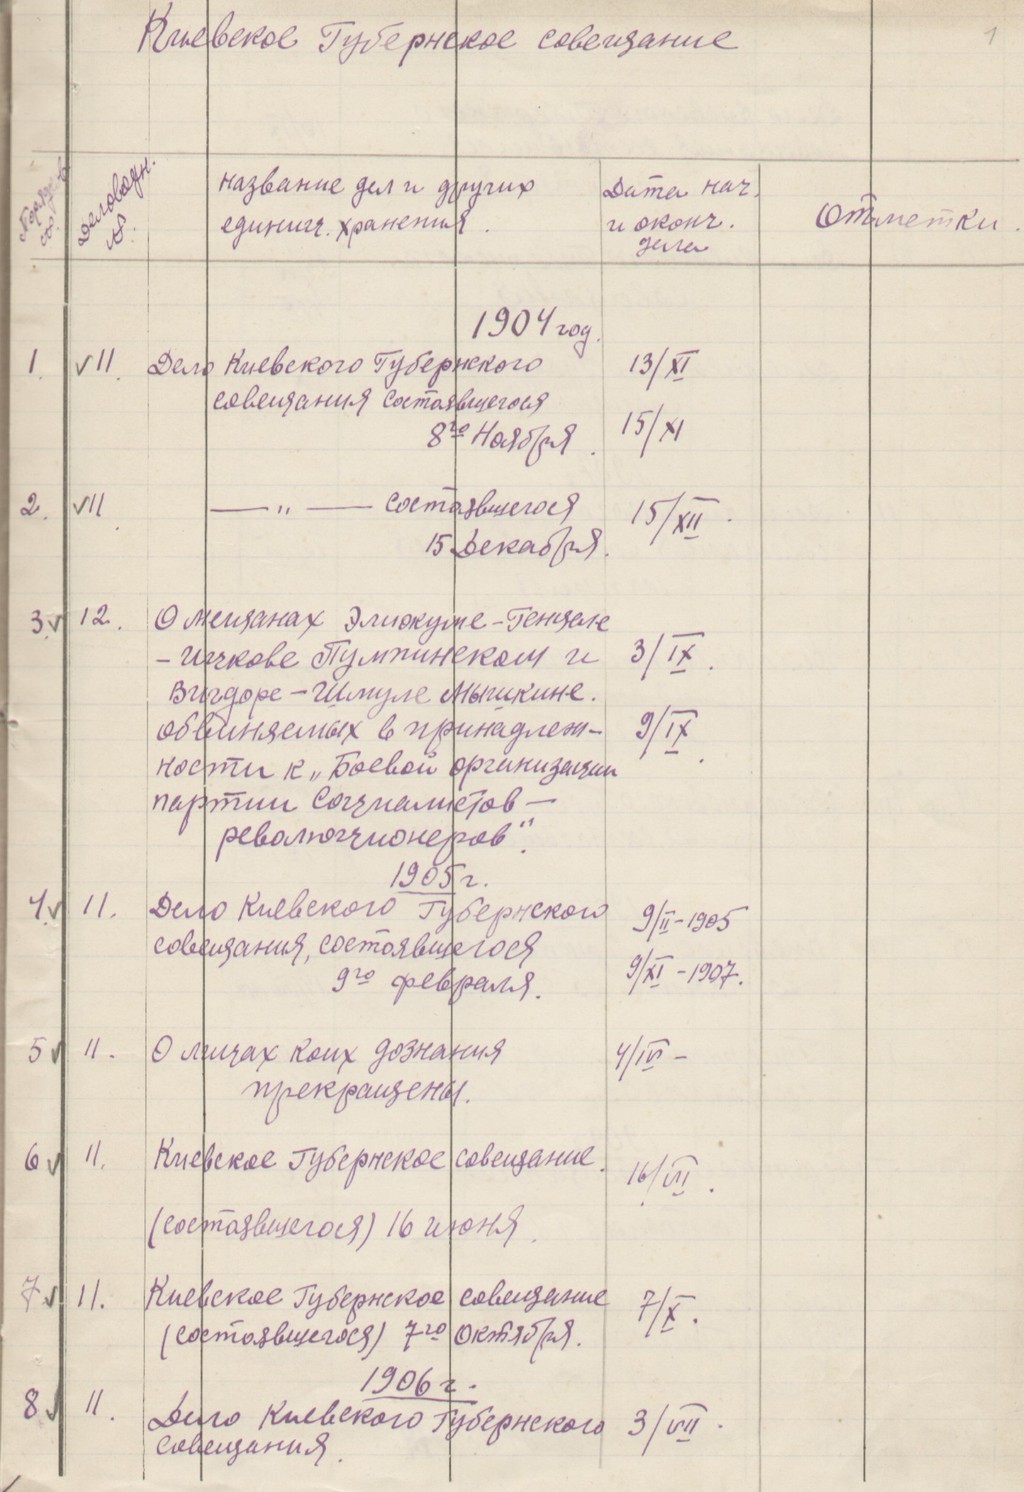 Киевское Губернское совещание
1
Порядк. №
Деловодн. №
название дел и других
единич. хранения.
Дата нач.
и оконч.
дела
Отметки.
1904 год.
1. 11. Дело Киевского Губернского 13/XI
совещания состоявшегося
8го Ноября. 15/XI
2. 11. — „ — состоявшегося 15/XII.
15 Декабря.
3. 12. О мещанах
3/IX.
Вигдоре-Шмуле Мышкине.
обвиняемых в принадлеж- 9/IX.
ности к „Боевой организации
партии Социалистов-
революционеров".
1905 г.
4. 11. Дело Киевского Губернского 9/II-1905
совещания, состоявшегося
9го февраля. 9/XI-1907.
5 11. О лицах коих дознания 4/IV-
прекращены.
6 11. Киевское Губернское совещание. 16/VII.
(состоявшегося) 16 июня.
7 11. Киевское Губернское совещание 7/X.
(состоявшегося) 7го Октября.
1906 г.
8 11. Дело Киевского Губернского 3/VII.
совещания.